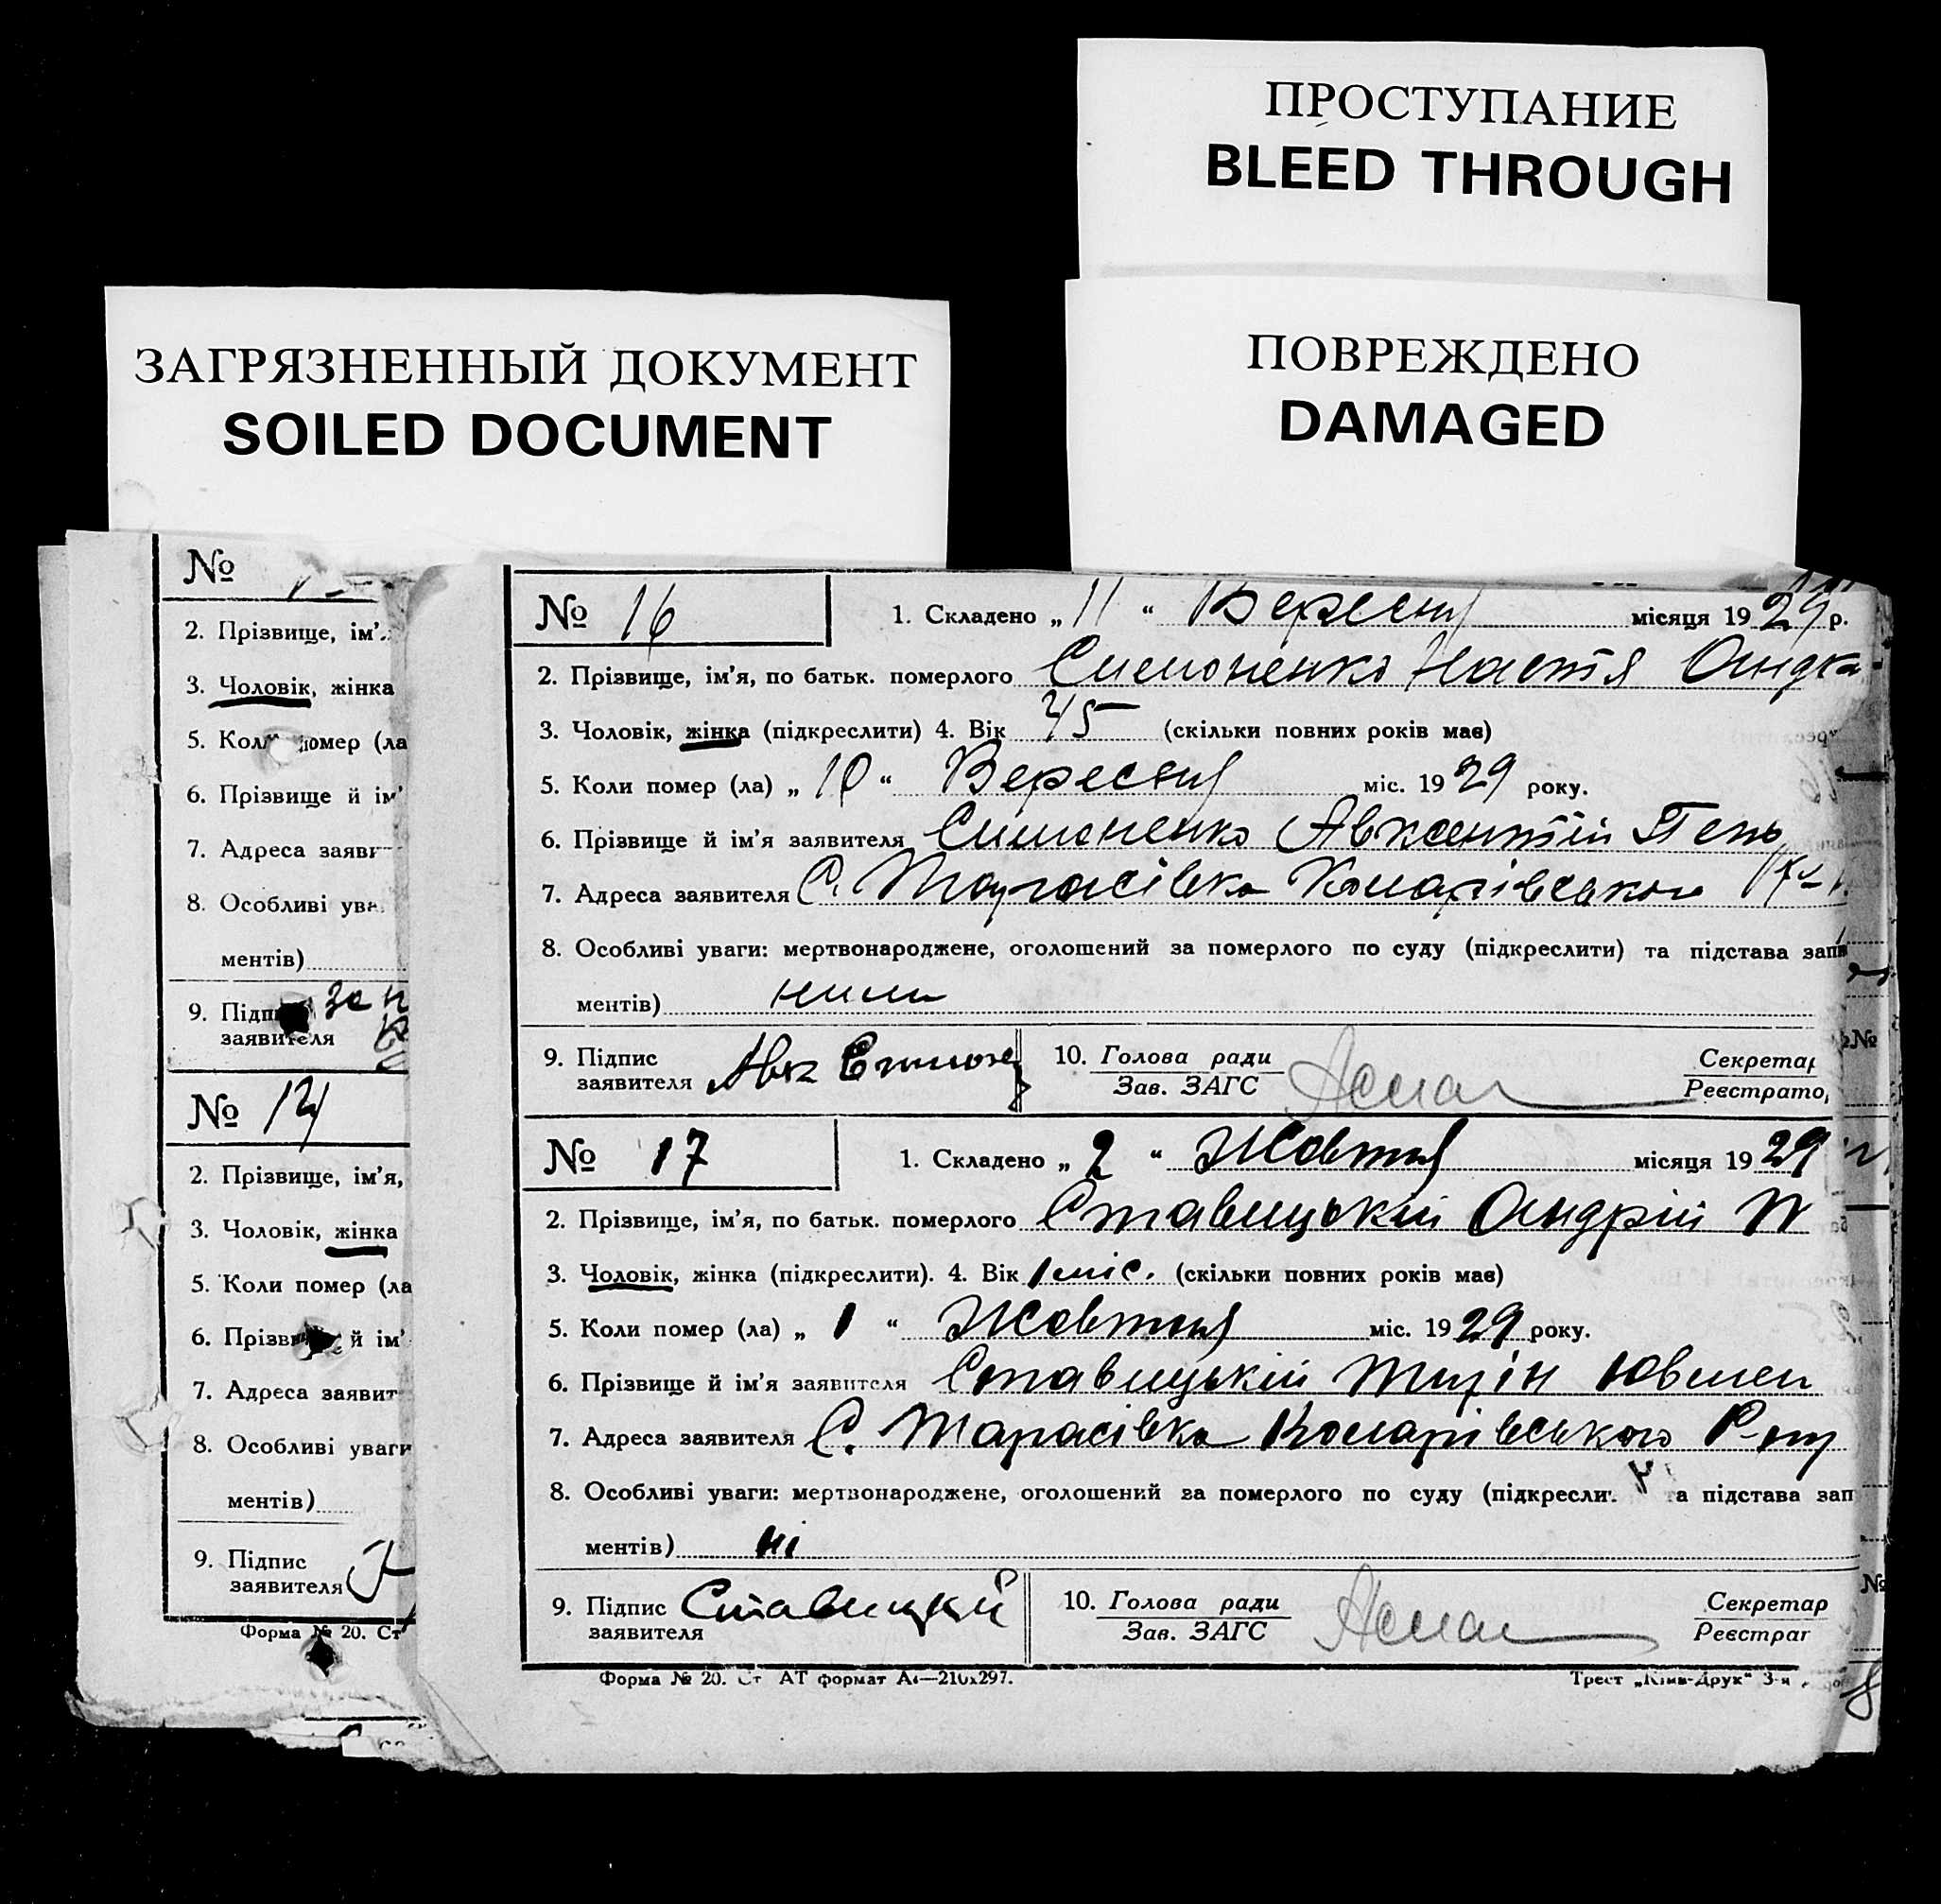 ПРОСТУПАНИЕ
BLEED THROUGH
ЗАГРЯЗНЕННЫЙ ДОКУМЕНТ
SOILED DOCUMENT
ПОВРЕЖДЕНО
DAMAGED
№
2. Прізвище, ім'
3. Чоловік, жінка
5. Коли помер (ла
6. Прізвище й ім'
7. Адреса заяви
8. Особливі ува
ментів)
9. Підп
заявителя
№
2. Прізвище, ім'я,
3. Чоловік, жінка
5. Коли помер (ла
6. Прізви й ім'
7. Адреса заявит
8. Особливі уваги
ментів)
9. Підпис
заявителя
Форма № 20. Ст
№ 16
1. Складено „ 11 “ Вересня місяця 1929 р.
2. Прізвище, ім'я, по батьк. померлого Симоненко Настя
3. Чоловік, жінка (підкреслити) 4. Вік 45 (скільки повних років має)
5. Коли помер (ла) „ 10 “ Вересня міс. 1929 року.
6. Прізвище й ім'я заявителя Симоненко Авксентій
7. Адреса заявителя С. Тарасівка Комарівського
8. Особливі уваги: мертвонароджене, оголошений за померлого по суду (підкреслити) та підстава запи
ментів)
9. Підпис
заявителя Авк
10. Голова ради
Зав. ЗАГС
Секретар
Реєстрато
№ 17
1. Складено „ 2 “ Жовтня місяця 1929
2. Прізвище, ім'я, по батьк. померлого Ставицький Андрій
3. Чоловік, жінка (підкреслити). 4. Вік 1 міс. (скільки повних років має)
5. Коли помер (ла) „ 1 “ Жовтня міс. 1929 року.
6. Прізвище й ім'я заявителя Ставицький
7. Адреса заявителя С. Тарасівка Комарівського Р-ну
8. Особливі уваги: мертвонароджене, оголошений за померлого по суду (підкресли та підстава зап
ментів) ні
9. Підпис Ставицкий
заявителя
10. Голова ради
Зав. ЗАГС
Секретар
Реєстрат
Форма № 20. Ст АТ формат А4—210x297.
Трест „Київ-Друк“ 3-я